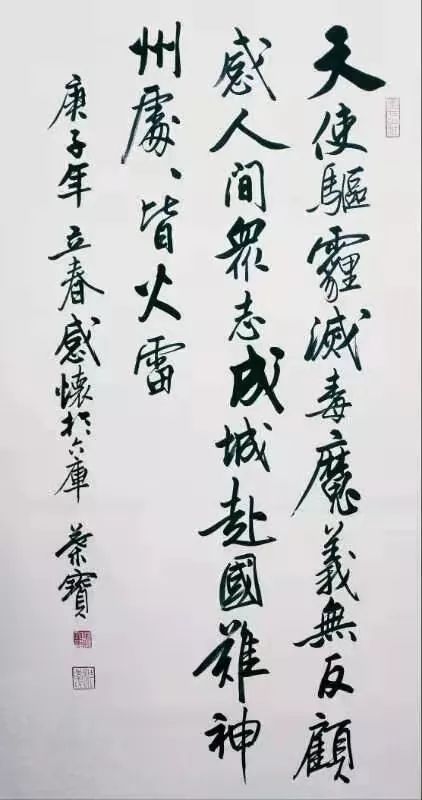 天使驅霾滅毒魔義無反顧
感人間眾志成城赴國難神
州處、皆火雷
庚子年 立春感懷於六庫 榮寶